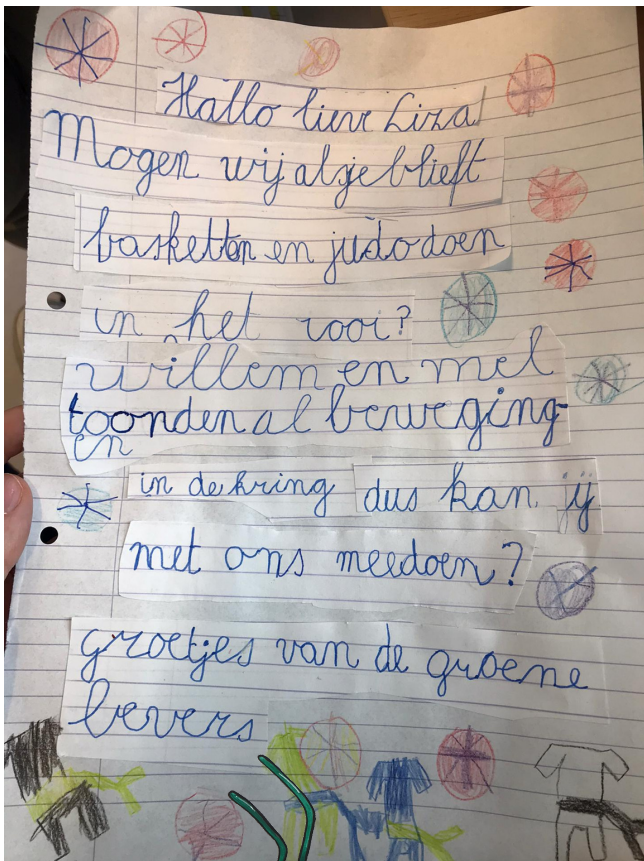 Hallo lieve Liza
Mogen wij alsjeblieft
basketten en judo doen
in het rooi?
willem en mel
toonden al beweging-
en
in de kring dus kan jij
met ons meedoen?
groetjes van de groene
bevers